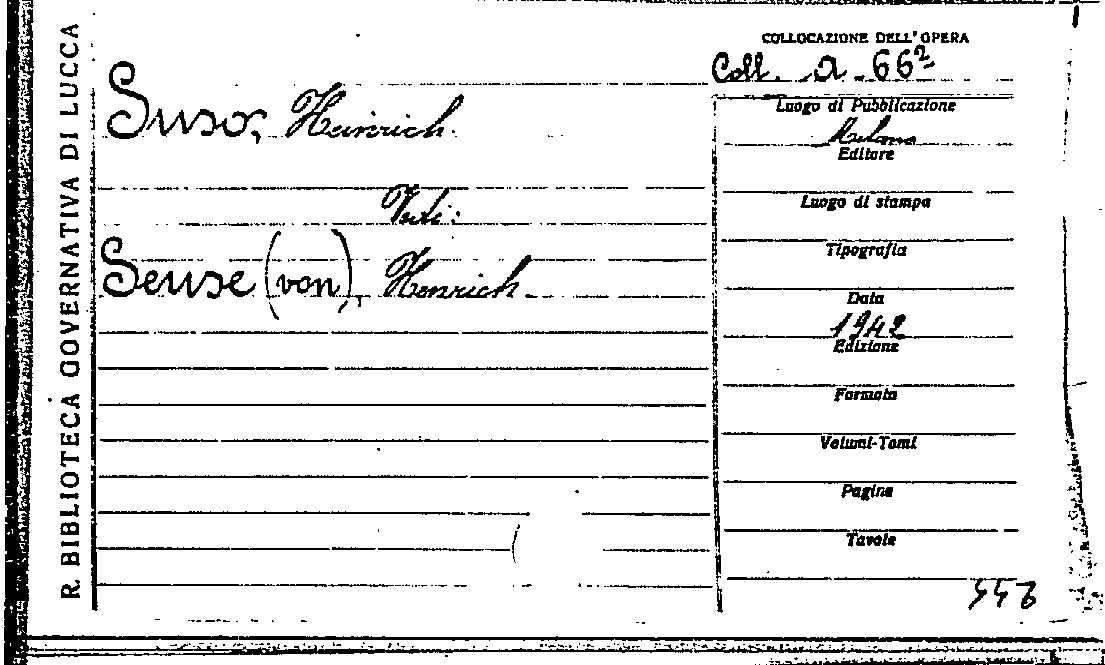 R. BIBLIOTECA GOVERNATIVA DI LUCCA
Suso, Heinrich.
Vedi:
Seuse (von), Henrich.
COLLOCAZIONE DELL'OPERA
Coll. a. 66²
Luogo di Pubblicazione
Milano
Editore
Luogo di stampa
Tipografia
Data
1942
Edizione
Formato
Volumi-Tomi
Pagine
Tavole